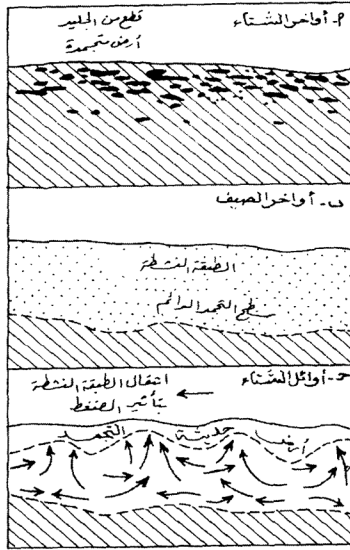 م- أواخر الشتاء
قطع من الجليد
أرض متجمدة
ب- أواخر الصيف
الطبقة النشطة
سطح التجمد الدائم
ح- أوائل الشتاء
انتقال الطبقة النشطة
بتأثير الضغط
أرض حديثة التجمد